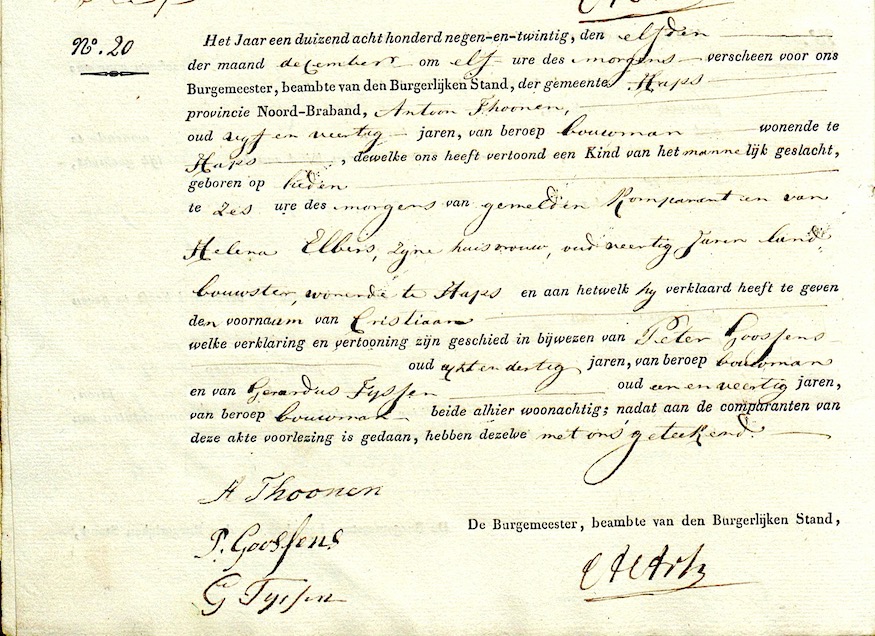 No. 20
Het Jaar een duizend acht honderd negen-en-twintig, den elfden
der maand december om elf ure des morgens verscheen voor ons
Burgemeester, beambte van den Burgerlijken Stand, der gemeente Haps
provincie Noord-Braband, Antoon Thoonen,
oud vyf en veertig jaren, van beroep bouwman wonende te
Haps, dewelke ons heeft vertoond een Kind van het mannelijk geslacht,
geboren op heden
te zes ure des morgens van gemelden Komparant en van
Helena Elbers, zyne huisvrouw, oud veertig Jaren land
bouwster, wonende te Haps en aan hetwelk hy verklaard heeft te geven
den voornaum van Cristiaan
welke verklaring en vertooning zijn geschied in bijwezen van Peter Goossens
oud acht en dertig jaren, van beroep bouwman
en van Gerardus Tyssen oud een en veertig jaren,
van beroep bouwman beide alhier woonachtig; nadat aan de comparanten van
deze akte voorlezing is gedaan, hebben dezelve met ons geteekend.
A Thoonen
De Burgemeester, beambte van den Burgerlijken Stand,
P. Goossens
G Tyssen